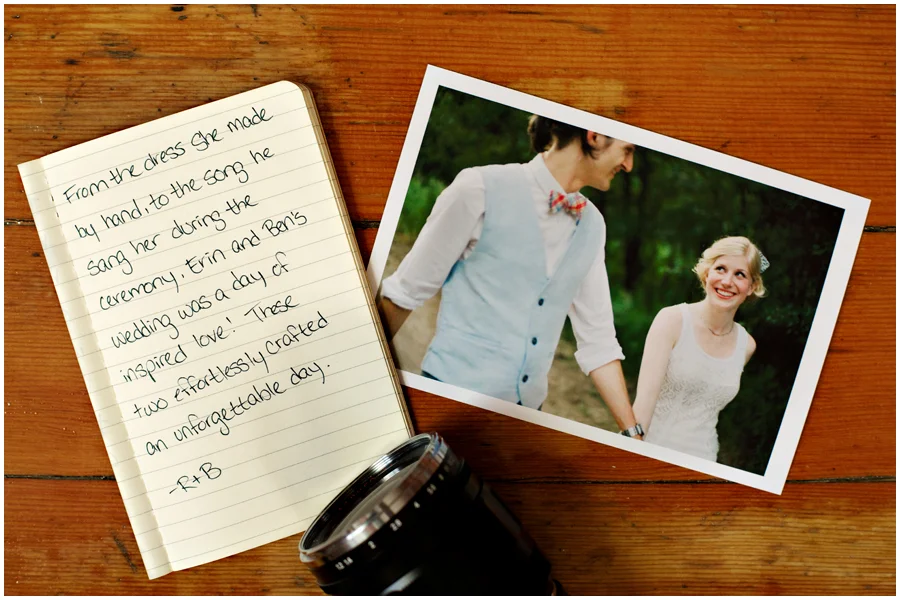 From the dress she made
by hand, to the song he
sang her during the
ceremony, Erin and Ben's
wedding was a day of
inspired love! These
two effortlessly crafted
an unforgettable day.
-R+B